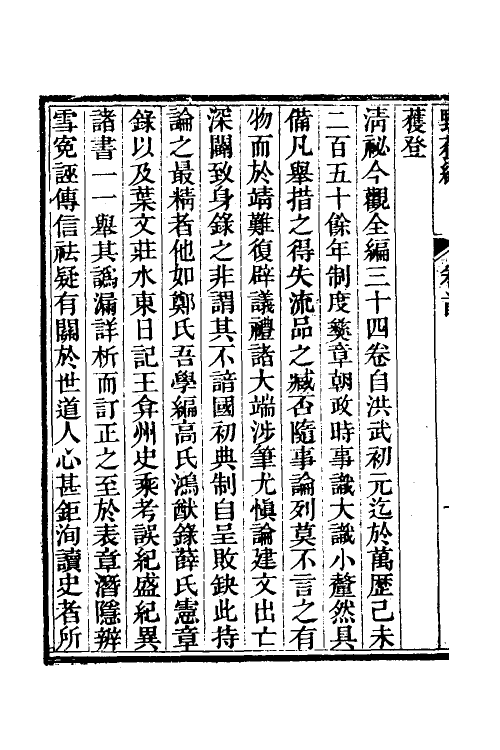 獲登
淸祕今觀全編三十四卷自洪武初元迄於萬歷己未
二百五十餘年制度彝章朝政時事識大識小釐然具
備凡舉措之得失流品之臧否隨事論列莫不言之有
物而於靖難復辟議禮諸大端涉筆尤愼論建文出亡
深闢致身錄之非謂其不諳國初典制自呈敗缺此持
論之最精者他如鄭氏吾學編高氏鴻猷錄薛氏憲章
錄以及葉文莊水東日記王弇州史乘考誤紀盛紀異
諸書一一舉其譌漏詳析而訂正之至於表章潛隱辨
雪寃誣傳信祛疑有關於世道人心甚鉅洵讀史者所